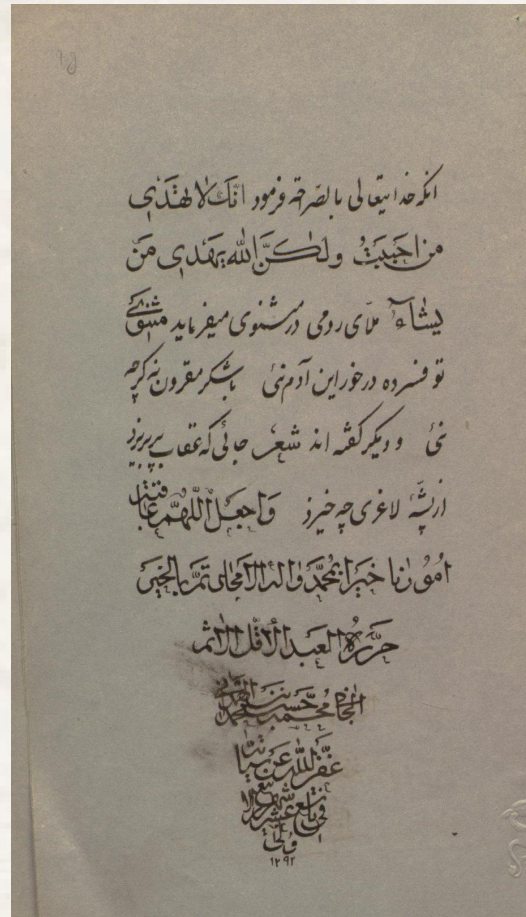 انکه خدایتعالی بالصّراحه فرمود انّك لا تهدی
من احببت ولكنّ الله یهدی من
یشاء ملّای رومی در مثنوی میفرماید مثنوی
تو فسرده درخور این دم نئ باشکر مقرون نه کرچه
نئ و دیکر کفته اند شعر جائی که عقاب پر بریزد
از پشّهٔ لاغری چه خیزد واجعل اللّهمّ عاقبة
امورنا خیرا بمحمّد واله الامجاد تمّ بالخیر
حرّره العبد الاقل الاثم
محمد حسن
غفر الله عن سیئاته
فی تاسع عشر شهر
۱۲۹۲